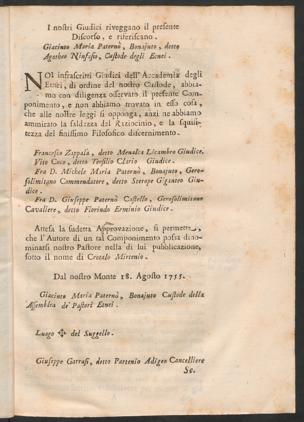 I nostri Giudici riveggano il presente
Discorso, e riferiscano.
Giacinto Maria Paternò, Bonajuto, detto
Agatheo Ninfasio, Custode degli Etnei.
NOI infrascritti Giudici dell'Accademia degli
Etnei, di ordine del nostro Custode, abbia-
mo con diligenza osservato il presente Com-
ponimento, e non abbiamo trovato in esso cosa,
che alle nostre leggi si opponga, anzi ne abbiamo
ammirato la saldezza del Raziocinio, e la squisi-
tezza del finissimo Filosofico discernimento.
Francesco Zappalà, detto Menalca Licambro Giudice.
Vito Coco, detto Torsilio Clario Giudice.
Fra D. Michele Maria Paternò, Bonajuto, Gero-
solimitano Commendatore, detto Sterope Giganteo Giu-
dice.
Fra D. Giuseppe Paternò Castello, Gerosolimitano
Cavaliere, detto Florindo Erminio Giudice.
Attesa la sudetta Approvazione, si permette,
che l'Autore di un tal Componimento possa dino-
minarsi nostro Pastore nella di lui pubblicazione,
sotto il nome di Cratejo Mirtenio.
Dal nostro Monte 18. Agosto 1755.
Giacinto Maria Paternò, Bonajuto Custode della
Assemblea de' Pastori Etnei.
Luogo ✠ del Suggello.
Giuseppe Garrasi, detto Partenio Adigeo Cancelliere
Se.